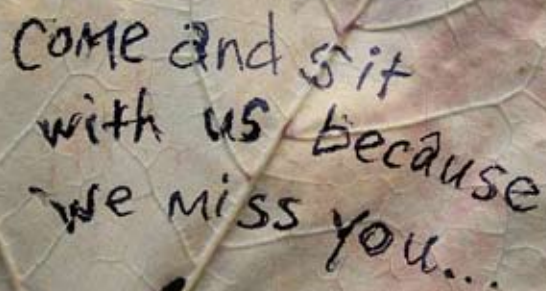 Come and sit
with us because
we miss you...